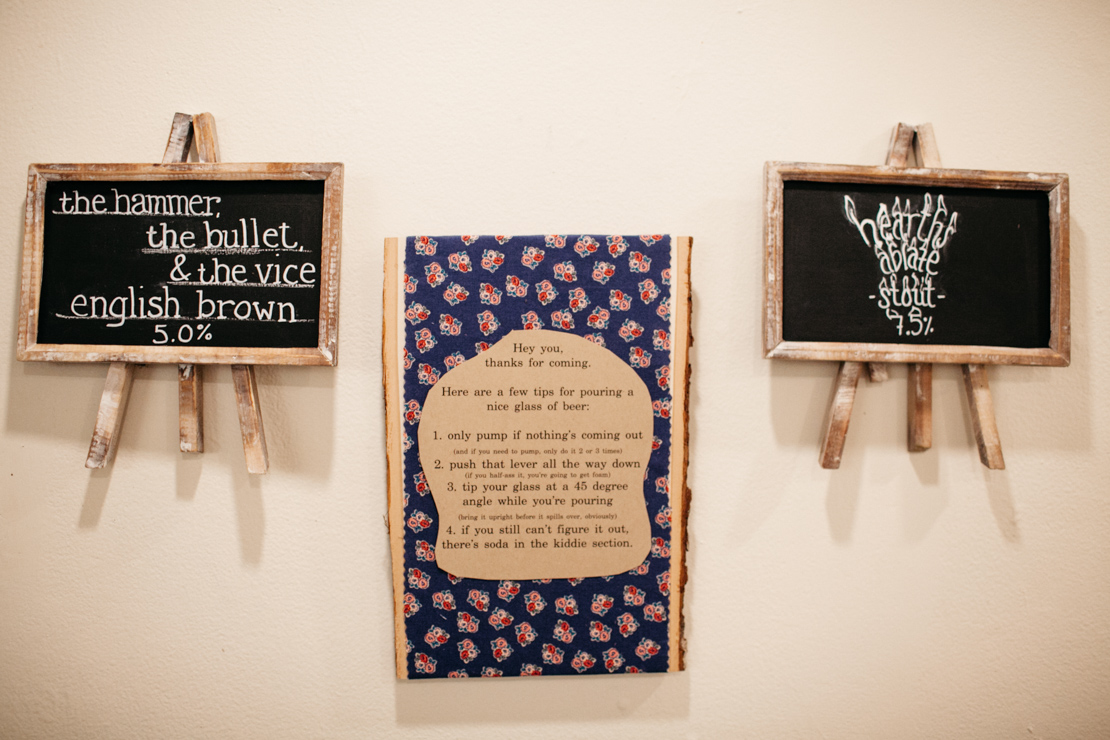 the hammer,
the bullet,
& the vice
english brown
5.0%
Hey you,
thanks for coming.
Here are a few tips for pouring a
nice glass of beer:
1. only pump if nothing's coming out
(and if you need to pump, only do it 2 or 3 times)
2. push that lever all the way down
(if you half-ass it, you're going to get foam)
3. tip your glass at a 45 degree
angle while you're pouring
(bring it upright before it spills over, obviously)
4. if you still can't figure it out,
there's soda in the kiddie section.
hearths
ablaze
-stout-
7.5%